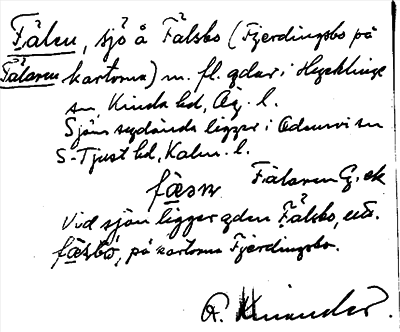 Fälen, sjö å Fålsbo (Fjerdingsbo på
Fälaren kartorna) m. fl. gdar i Hycklinge
sn, Kinda hd, Ög. l.
Sjöns sydända ligger i Odensvi sn
S-Tjust hd, Kalm. l.
fæsn Fälaren G. ek
Vid sjön ligger gden Fålsbo, utt.
fåsbo, på kartorna Fjerdingsbo.